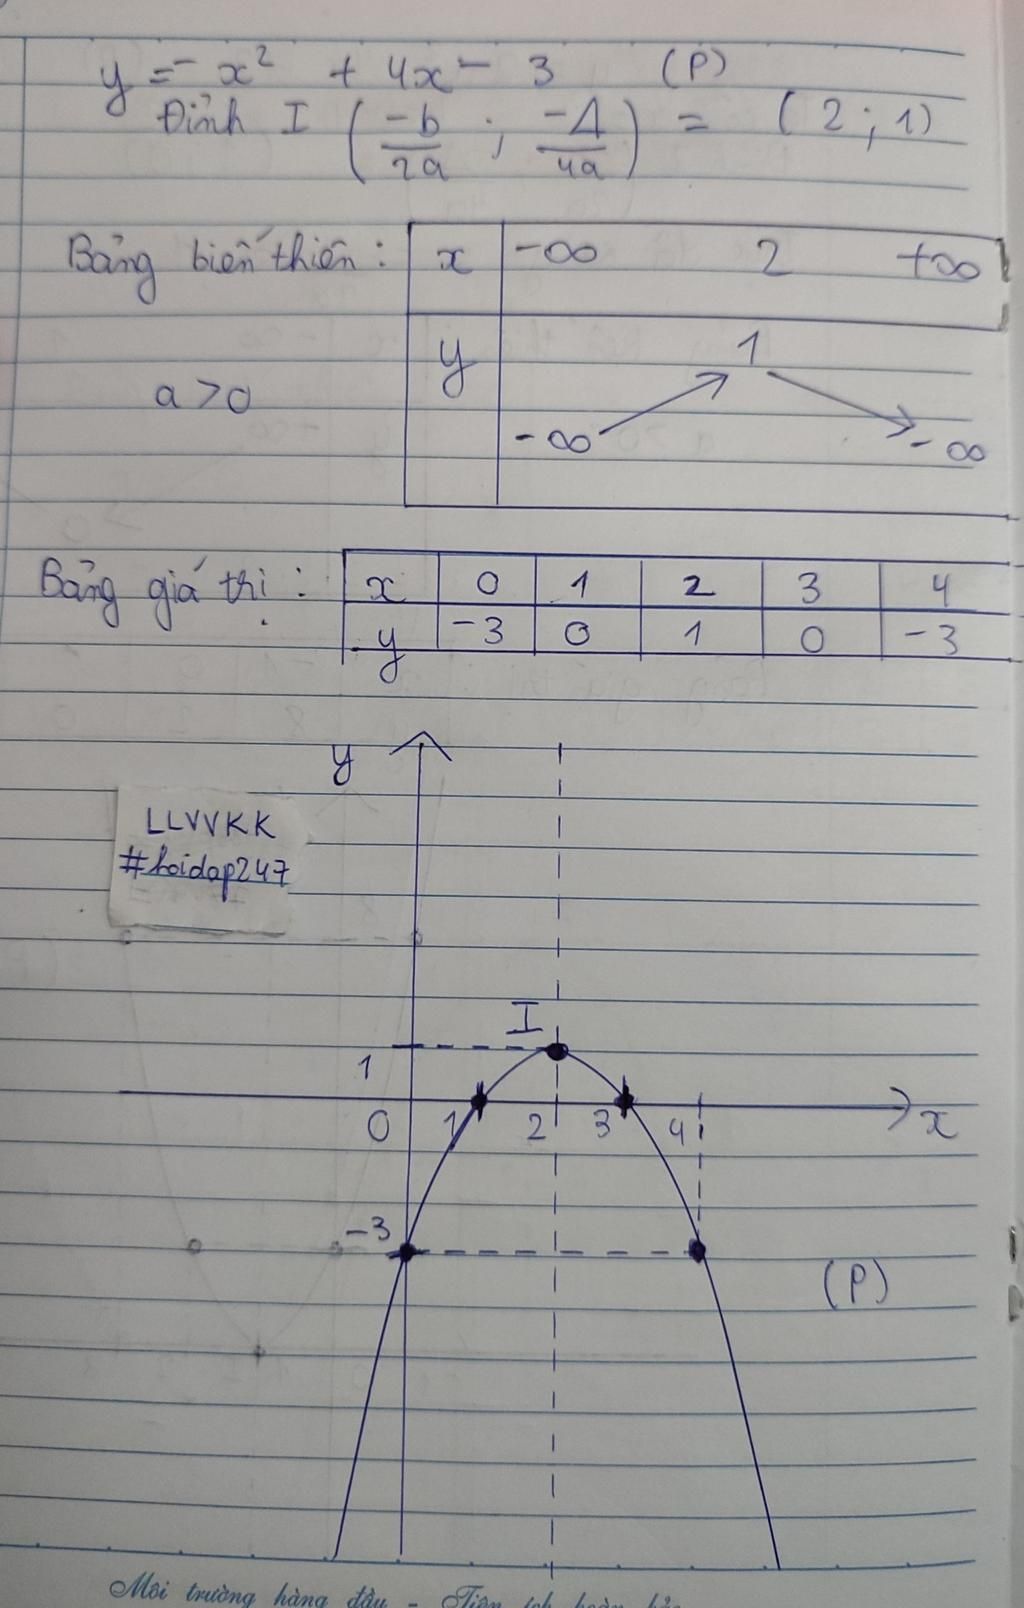 y = - x² + 4x - 3 (P)
Đỉnh I (-b/2a ; -Δ/4a) = (2 ; 1)
Bảng biến thiên : x -∞ 2 +∞
y 1
a > 0
-∞ -∞
Bảng giá trị : x 0 1 2 3 4
y -3 0 1 0 -3
y
LLVVKK
#hoidap247
I
1
0 1 2 3 4 x
-3
(P)
Môi trường hàng đầu -